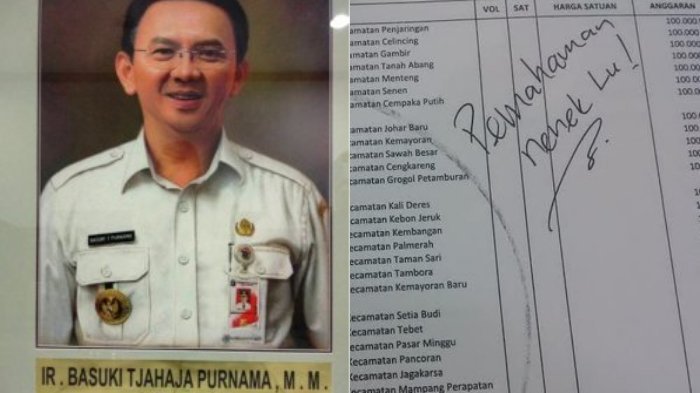 BASUKI T PURNAMA
IR . BASUKI TJAHAJA PURNAMA , M . M .
VOL SAT HARGA SATUAN ANGGARAN
Kecamatan Penjaringan 100.000
Kecamatan Cilincing 100.000
Kecamatan Gambir 100.000
Kecamatan Tanah Abang 100.000
Kecamatan Menteng 100.000
Kecamatan Senen 100.000
Kecamatan Cempaka Putih
Kecamatan Johar Baru
Kecamatan Kemayoran
Kecamatan Sawah Besar
Kecamatan Cengkareng
Kecamatan Grogol Petamburan
Kecamatan Kali Deres
Kecamatan Kebon Jeruk
Kecamatan Kembangan
Kecamatan Palmerah
Kecamatan Taman Sari
Kecamatan Tambora
Kecamatan Kemayoran Baru
Kecamatan Setia Budi
Kecamatan Tebet
Kecamatan Pasar Minggu
Kecamatan Pancoran
Kecamatan Jagakarsa
Kecamatan Mampang Perapatan
Pemahaman
nenek Lu!